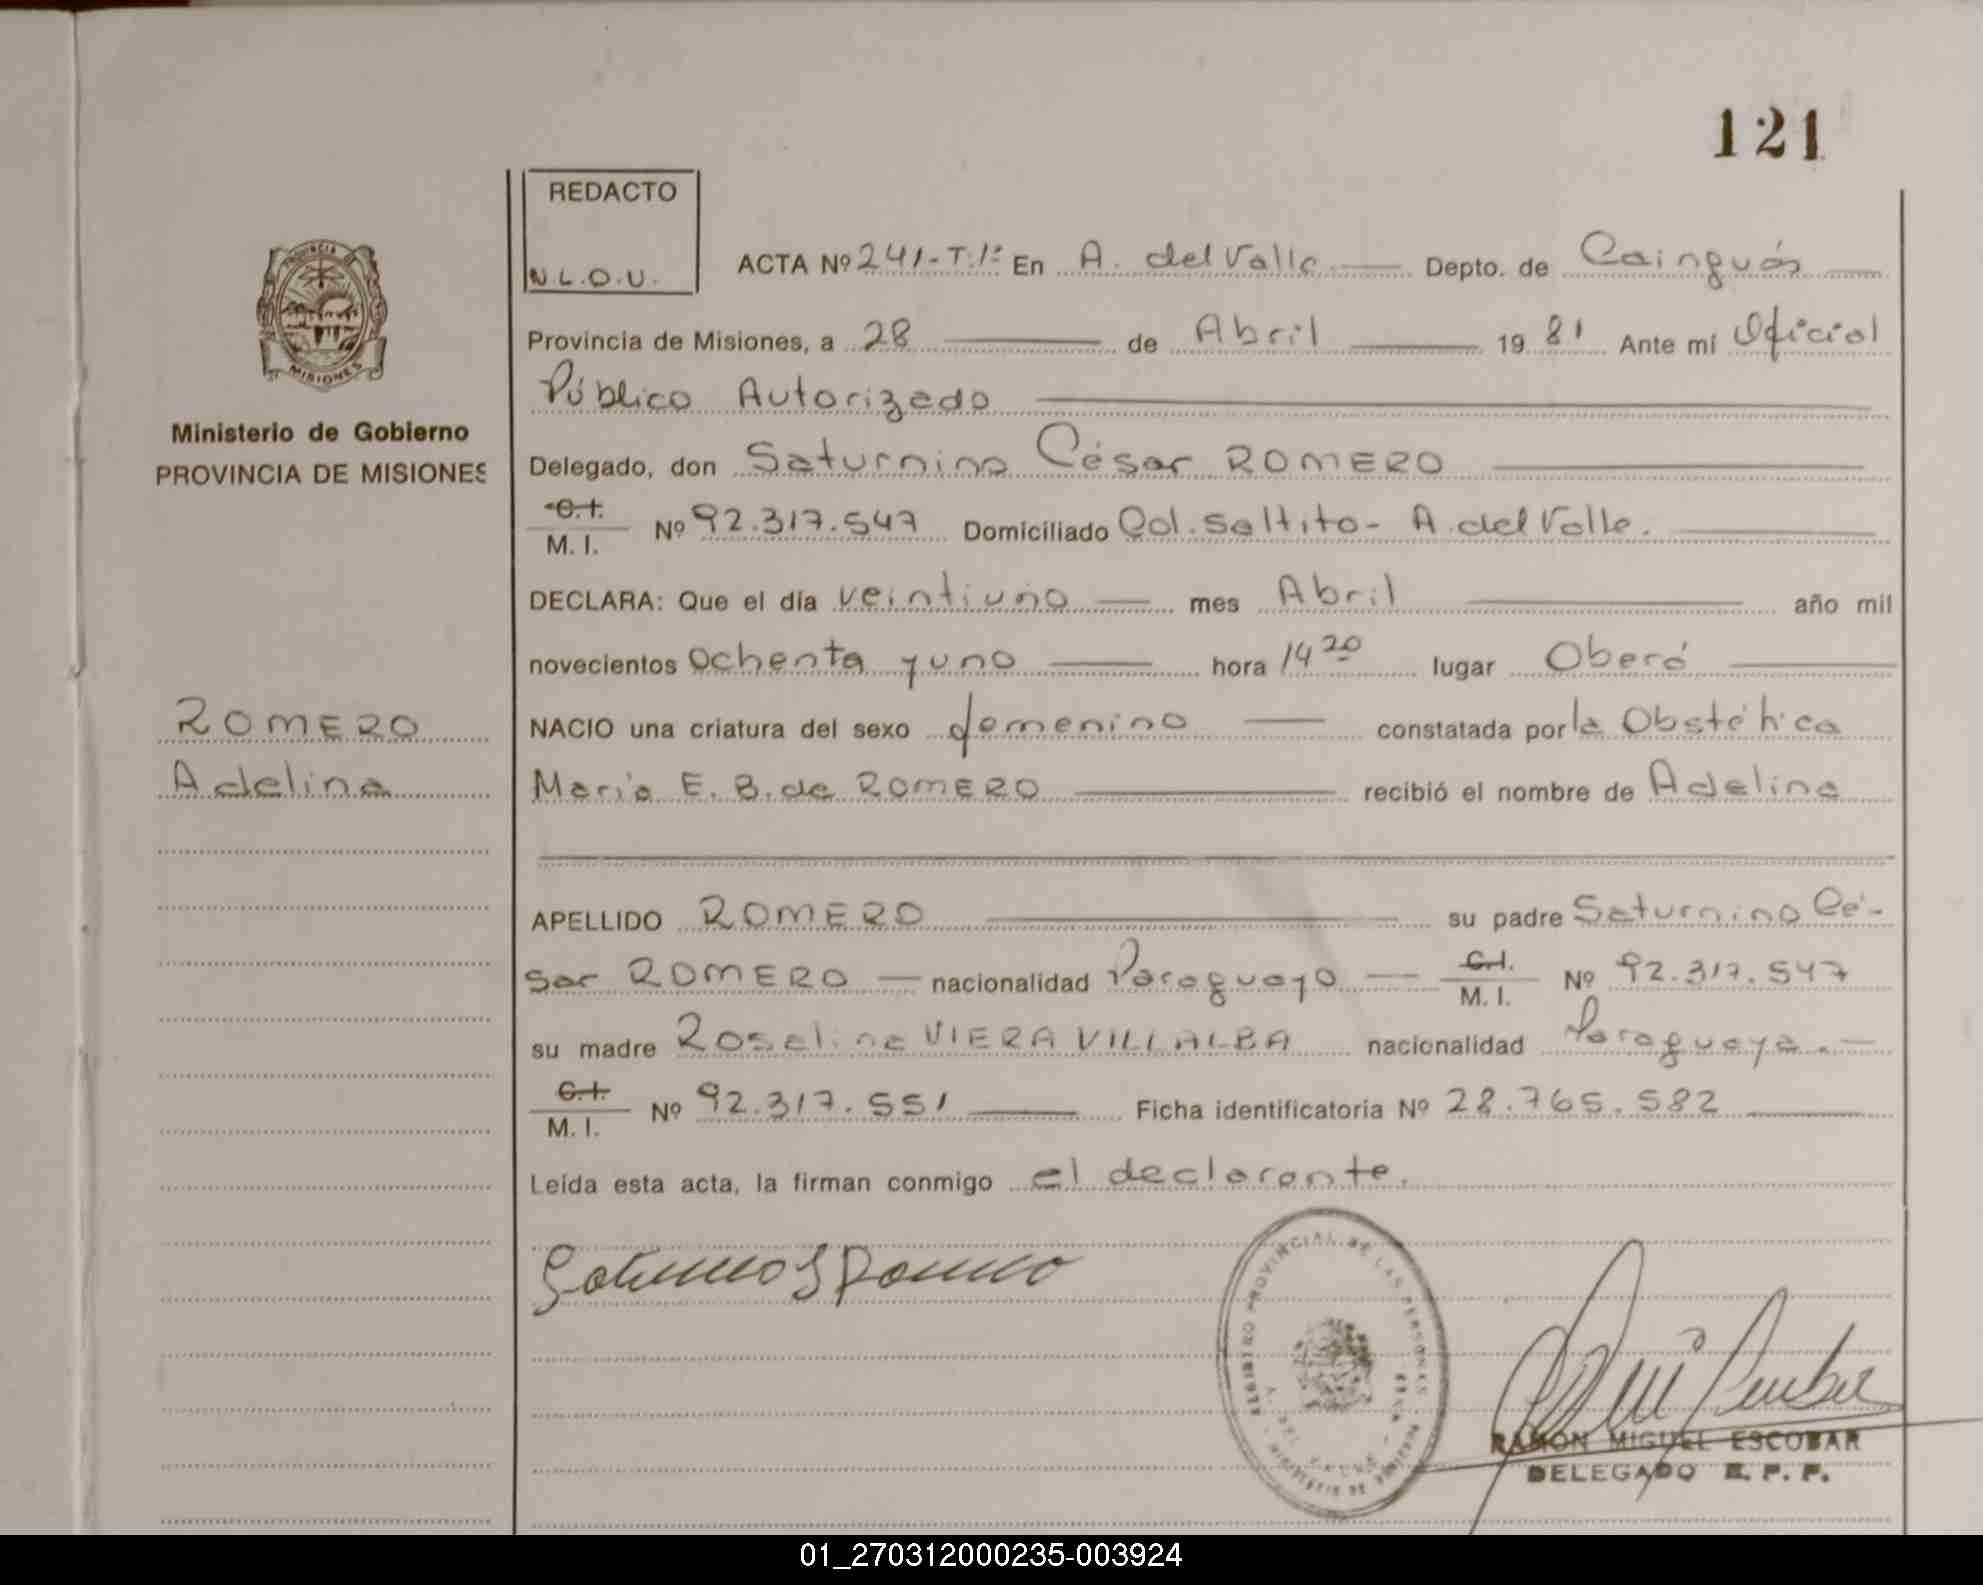 121
REDACTO
N.L.O.U.
ACTA Nº 241-T.1º En A. del Valle Depto. de Cainguás
Provincia de Misiones, a 28 de Abril 1981 Ante mí Oficial
Público Autorizado
Ministerio de Gobierno
PROVINCIA DE MISIONES
Delegado, don Saturnino César ROMERO
C.I. M. I. Nº 92.317.547 Domiciliado Col. Saltito - A. del Valle.
DECLARA: Que el día veintiuno mes Abril año mil
novecientos ochenta y uno hora 14 20 lugar Oberá
ROMERO
Adelina
NACIO una criatura del sexo femenino constatada por la Obstétrica
María E. B. de ROMERO recibió el nombre de Adelina
APELLIDO ROMERO su padre Saturnino Cé-
sar ROMERO nacionalidad Paraguayo C.I. M. I. Nº 92.317.547
su madre Roselina VIERA VILLALBA nacionalidad Paraguaya.
C.I. M. I. Nº 92.317.551 Ficha identificatoria Nº 28.765.582
Leída esta acta, la firman conmigo el declarante.
REGISTRO PROVINCIAL DE LAS PERSONAS
RAMON MIGUEL ESCOBAR
DELEGADO R. P. P.
01_270312000235-003924